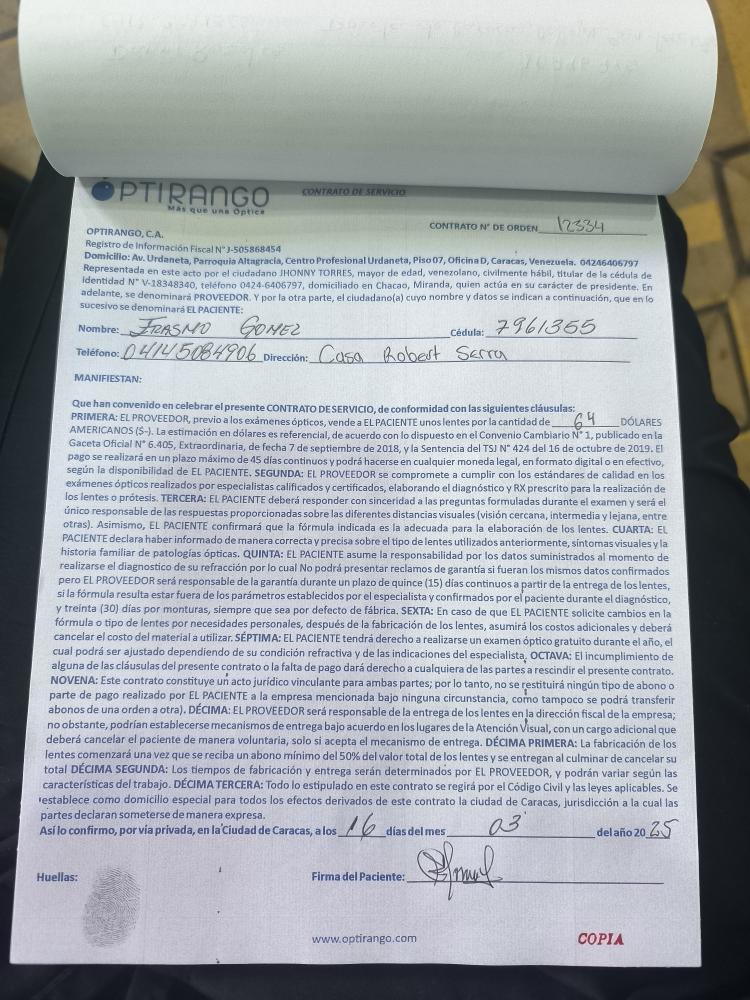 OPTIRANGO
Más que una Óptica
CONTRATO DE SERVICIO
CONTRATO N° DE ORDEN 12334
OPTIRANGO, C.A.
Registro de Información Fiscal N° J-505868454
Domicilio: Av. Urdaneta, Parroquia Altagracia, Centro Profesional Urdaneta, Piso 07, Oficina D, Caracas, Venezuela. 04246406797
Representada en este acto por el ciudadano JHONNY TORRES, mayor de edad, venezolano, civilmente hábil, titular de la cédula de
identidad N° V-18348340, teléfono 0424-6406797, domiciliado en Chacao, Miranda, quien actúa en su carácter de presidente. En
adelante, se denominará PROVEEDOR. Y por la otra parte, el ciudadano(a) cuyo nombre y datos se indican a continuación, que en lo
sucesivo se denominará EL PACIENTE:
Nombre: Erasmo Gomez Cédula: 7961355
Teléfono: 04145084906 Dirección: Casa Robert Serra
MANIFIESTAN:
Que han convenido en celebrar el presente CONTRATO DE SERVICIO, de conformidad con las siguientes cláusulas:
PRIMERA: EL PROVEEDOR, previo a los exámenes ópticos, vende a EL PACIENTE unos lentes por la cantidad de 64 DÓLARES
AMERICANOS ($-). La estimación en dólares es referencial, de acuerdo con lo dispuesto en el Convenio Cambiario N° 1, publicado en la
Gaceta Oficial N° 6.405, Extraordinaria, de fecha 7 de septiembre de 2018, y la Sentencia del TSJ N° 424 del 16 de octubre de 2019. El
pago se realizará en un plazo máximo de 45 días continuos y podrá hacerse en cualquier moneda legal, en formato digital o en efectivo,
según la disponibilidad de EL PACIENTE. SEGUNDA: EL PROVEEDOR se compromete a cumplir con los estándares de calidad en los
exámenes ópticos realizados por especialistas calificados y certificados, elaborando el diagnóstico y RX prescrito para la realización de
los lentes o prótesis. TERCERA: EL PACIENTE deberá responder con sinceridad a las preguntas formuladas durante el examen y será el
único responsable de las respuestas proporcionadas sobre las diferentes distancias visuales (visión cercana, intermedia y lejana, entre
otras). Asimismo, EL PACIENTE confirmará que la fórmula indicada es la adecuada para la elaboración de los lentes. CUARTA: EL
PACIENTE declara haber informado de manera correcta y precisa sobre el tipo de lentes utilizados anteriormente, síntomas visuales y la
historia familiar de patologías ópticas. QUINTA: EL PACIENTE asume la responsabilidad por los datos suministrados al momento de
realizarse el diagnostico de su refracción por lo cual No podrá presentar reclamos de garantía si fueran los mismos datos confirmados
pero EL PROVEEDOR será responsable de la garantía durante un plazo de quince (15) días continuos a partir de la entrega de los lentes,
si la fórmula resulta estar fuera de los parámetros establecidos por el especialista y confirmados por el paciente durante el diagnóstico,
y treinta (30) días por monturas, siempre que sea por defecto de fábrica. SEXTA: En caso de que EL PACIENTE solicite cambios en la
fórmula o tipo de lentes por necesidades personales, después de la fabricación de los lentes, asumirá los costos adicionales y deberá
cancelar el costo del material a utilizar. SÉPTIMA: EL PACIENTE tendrá derecho a realizarse un examen óptico gratuito durante el año, el
cual podrá ser ajustado dependiendo de su condición refractiva y de las indicaciones del especialista. OCTAVA: El incumplimiento de
alguna de las cláusulas del presente contrato o la falta de pago dará derecho a cualquiera de las partes a rescindir el presente contrato.
NOVENA: Este contrato constituye un acto jurídico vinculante para ambas partes; por lo tanto, no se restituirá ningún tipo de abono o
parte de pago realizado por EL PACIENTE a la empresa mencionada bajo ninguna circunstancia, como tampoco se podrá transferir
abonos de una orden a otra). DÉCIMA: EL PROVEEDOR será responsable de la entrega de los lentes en la dirección fiscal de la empresa;
no obstante, podrían establecerse mecanismos de entrega bajo acuerdo en los lugares de la Atención Visual, con un cargo adicional que
deberá cancelar el paciente de manera voluntaria, solo si acepta el mecanismo de entrega. DÉCIMA PRIMERA: La fabricación de los
lentes comenzará una vez que se reciba un abono mínimo del 50% del valor total de los lentes y se entregan al culminar de cancelar su
total DÉCIMA SEGUNDA: Los tiempos de fabricación y entrega serán determinados por EL PROVEEDOR, y podrán variar según las
características del trabajo. DÉCIMA TERCERA: Todo lo estipulado en este contrato se regirá por el Código Civil y las leyes aplicables. Se
establece como domicilio especial para todos los efectos derivados de este contrato la ciudad de Caracas, jurisdicción a la cual las
partes declaran someterse de manera expresa.
Así lo confirmo, por vía privada, en la Ciudad de Caracas, a los 16 días del mes 03 del año 2025
Huellas:
Firma del Paciente:
www.optirango.com
COPIA